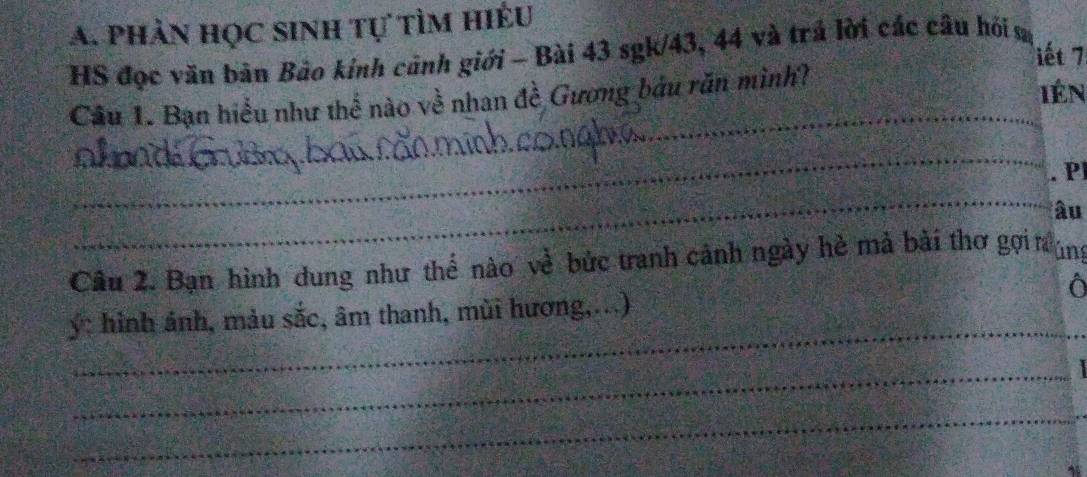 A. PHẦN HỌC SINH TỰ TÌM HIỂU
HS đọc văn bản Bảo kính cảnh giới – Bài 43 sgk/43, 44 và trả lời các câu hỏi
iết 7
Câu 1. Bạn hiểu như thế nào về nhan đề Gương báu răn mình?
IÊN
nhan đề Gương báu răn mình có nghĩa
. P
âu
Câu 2. Bạn hình dung như thế nào về bức tranh cảnh ngày hè mà bài thơ gợi ra
úng
ý: hình ảnh, màu sắc, âm thanh, mùi hương,…)
Ô